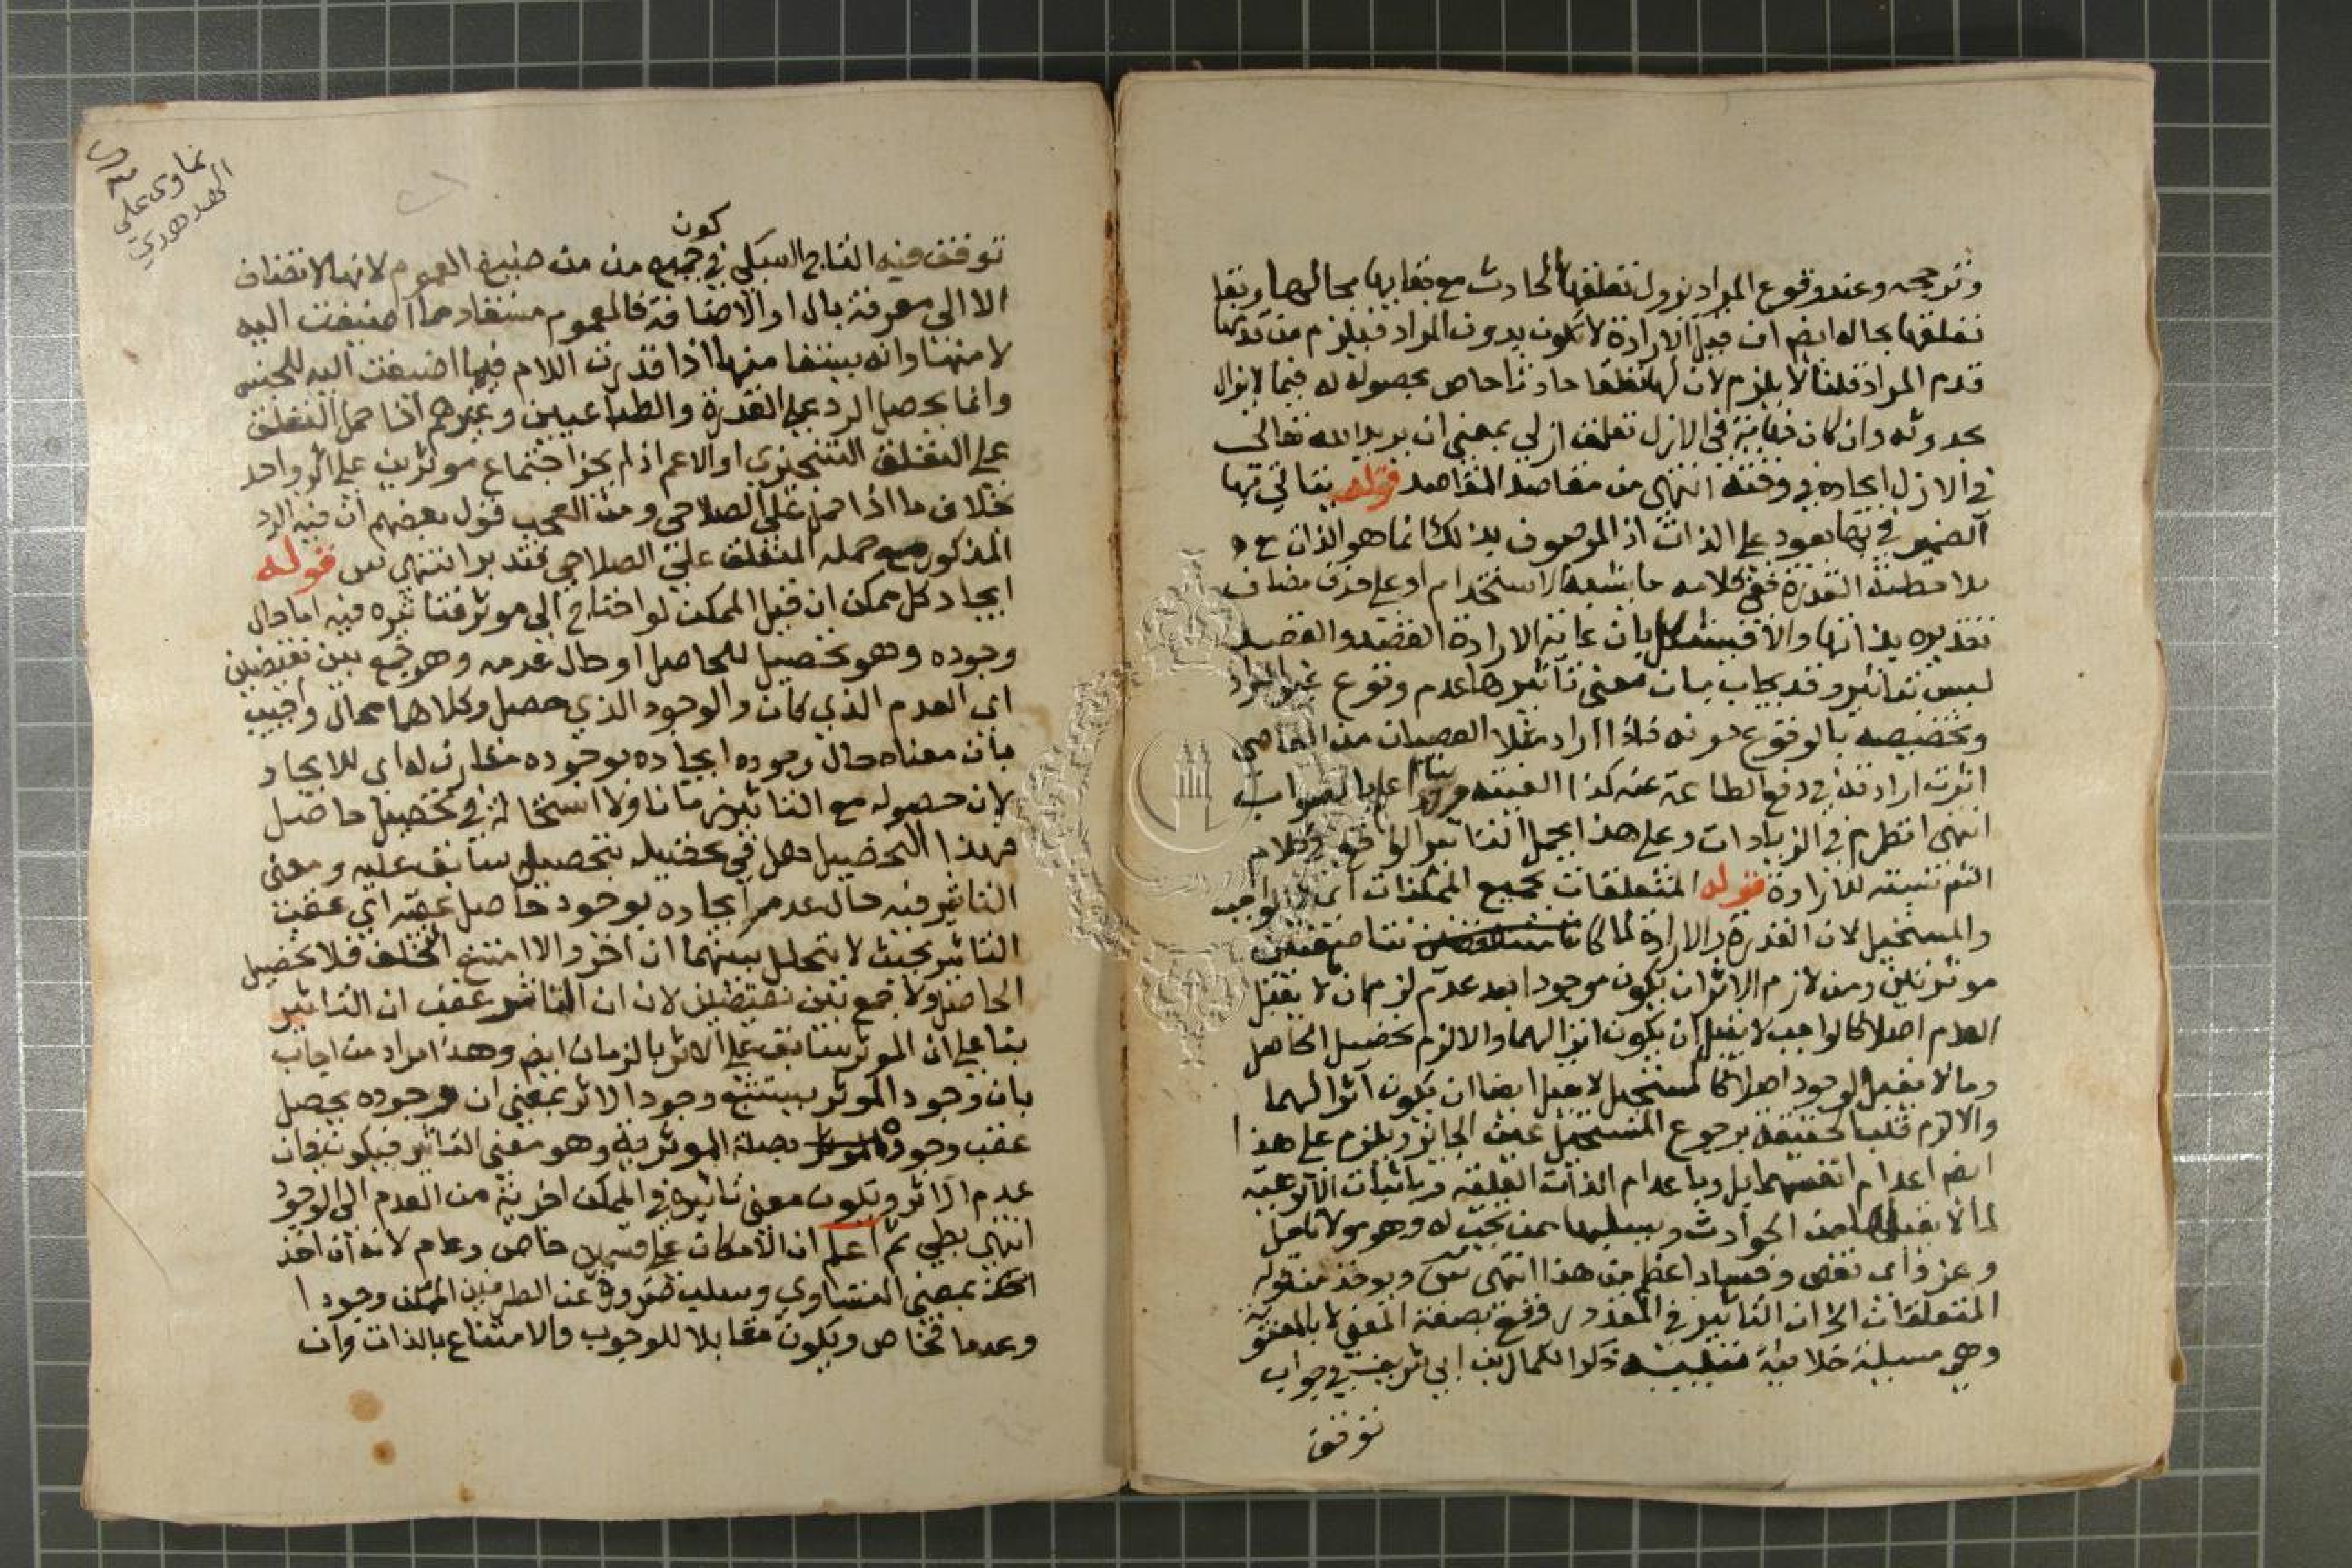 وترجحه وعند وقوع المراد نزول تعلقها الحادث مع بقايها بحالها وبقا
تعلقها بحاله ايضم ان قيل الارادة لا تكون بدون المراد فيلزم من قدمها
قدم المراد قلنا لا يلزم لان لها تعلقا حادثا خاص بحصوله له فيما لا يزال
بحدوثه وان كان في الازل تعلق ازلي بمعنى ان يريد الله تعالى
في الازل ايجاده في وقته انتهى من مقاصد المقاصد قوله يتاتي بها
الضمير في بها يعود على الذات اذ الموصوف بذلك انما هو الذات ع
ملاحظة القدرة ففي كلامه ما يشبه استخدام او على حذف مضاف
تقديره بذاتها والا فيشكل بان غاية الارادة القصد والقصد
ليس بتاثير وقد يجاب بان معنى تاثيرها عدم وقوع غير المراد
وتخصيصه بالوقوع دونه فاذا اراد مثلا العصيان من العاصي
اثرت ارادته في دفع الطاعة عنه كذا اعلم بالصواب
انتهى انظرم في الزيادات وعلى هذا يحمل التاثير الواقع في كلام
نسبته للارادة قوله المتعلقات بجميع الممكنات اي لا الواجب
والمستحيل لان القدرة والارادة لما كانتا صفتين
موثرتين ومن لازم الاثر ان يكون موجودا بعد عدم لزم ان ما لا يقبل
العدم اصلا كالواجب لا يقبل ان يكون اثرا لهما والا لزم تحصيل الحاصل
وما لا يقبل الوجود اصلا كالمستحيل لا يقبل ايضا ان يكون اثرا لهما
والا لزم قلب الحقيقة برجوع المستحيل عين الجائز ويلزم على هذا
ايضم اعدام انفسهما بل وباعدام الذات العلية وباثبات الالوهية
لما لا يقبلها من الحوادث وبسلبها عمن تجب له وهو مولانا جل
وعز واي نقص وفساد اعظم من هذا انتهى س ويوخذ من قوله
المتعلقات الخ ان التاثير في المقدور وقع بصفة المعنى لا بالمعنوية
وهي مسيلة خلافية تنبيه ذكر الكمال بن ابي شريف في جواب
توقف
توقف فيه التاج السبكي في كون جميع من من صيغ العموم لانها لا تضاف
الا الى معرفة بال او الاضافة فالعموم مستفاد مما اضيفت اليه
لا منها وانه يستفا منها اذا قدرت اللام فيما اضيفت اليه للجنس
وانما يحصل الرد على القدرة والطباعيين وغيرهم اذا حمل التعلق
على التعلق التنجيزي او الاعم اذ لم يجز اجتماع موثرين على اثر واحد
بخلاف ما اذا حمل على الصلاحي ومن العجب قول بعضهم ان فيه الرد
المذكور مع حمله المتعلق على الصلاحي فتدبر انتهى س قوله
ايجاد كل ممكن ان قيل الممكن لو احتاج الى موثر فتاثيره فيه اما حال
وجوده وهو تحصيل للحاصل او حال عدمه وهو جمع بين نقيضين
اي العدم الذي كان والوجود الذي حصل وكلاهما محال واجيب
بان معناه حال وجوده ايجاده بوجوده مقارن له اي للايجاد
لان حصوله مع التاثير زمانا ولا استحالة في تحصيل حاصل
بهذا التحصيل بل في تحصيله بتحصيل سابق عليه ومعنى
التاثير فيه حال عدمه ايجاده بوجود حاصل عقبه اي عقب
التاثير بحيث لا يتخلل بينهما ان اخر والا امتنع التخلف فلا تحصيل
الحاصل ولا جمع بين نقيضين لان ان التاثير عقب ان التاثير
بنا على ان الموثر سابق على الاثر بالزمان ايضم وهذا مراد من اجاب
بان وجود الموثر يستتبع وجود الاثر بمعنى ان وجوده يحصل
عقب وجوده بصفة الموثرية وهو معنى التاثير فيكون في ان
عدم الاثر ويكون معنى تاثيره في الممكن اخرجه من العدم الى الوجود
انتهى بطي ثم اعلم ان الامكان على قسمين خاص وعام لانه ان اخذ
بمعنى التساوي وسلب ضرورة عن الطرفين الممكن وجودا
وعدما فخاص ويكون مقابلا للوجوب والامتناع بالذات وان
نماوى على
الهدهدي